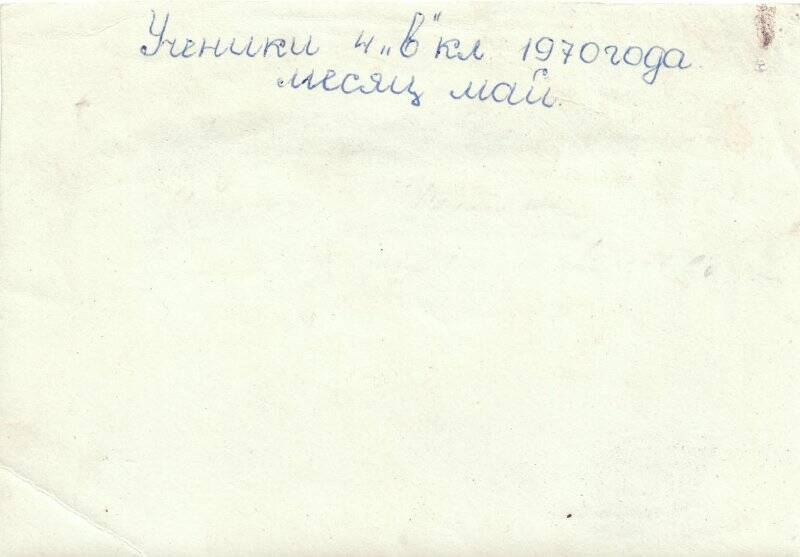 Ученики 4 „в" кл. 1970 года.
месяц май.